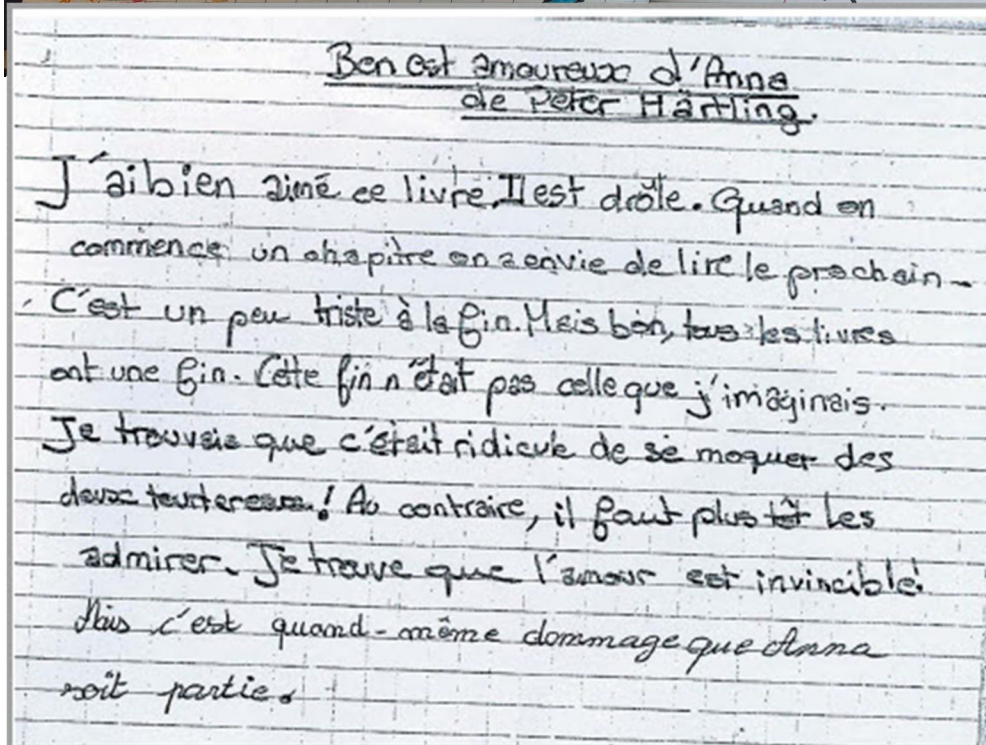 Ben est amoureux d'Anna
de Peter Härtling.
J'ai bien aimé ce livre. Il est drôle. Quand on
commence un chapitre on a envie de lire le prochain.
C'est un peu triste à la fin. Mais bon, tous les livres
ont une fin. Cette fin n'était pas celle que j'imaginais.
Je trouvais que c'était ridicule de se moquer des
deux tourtereaux! Au contraire, il faut plus tôt les
admirer. Je trouve que l'amour est invincible!
Mais c'est quand-même dommage que Anna
soit partie.